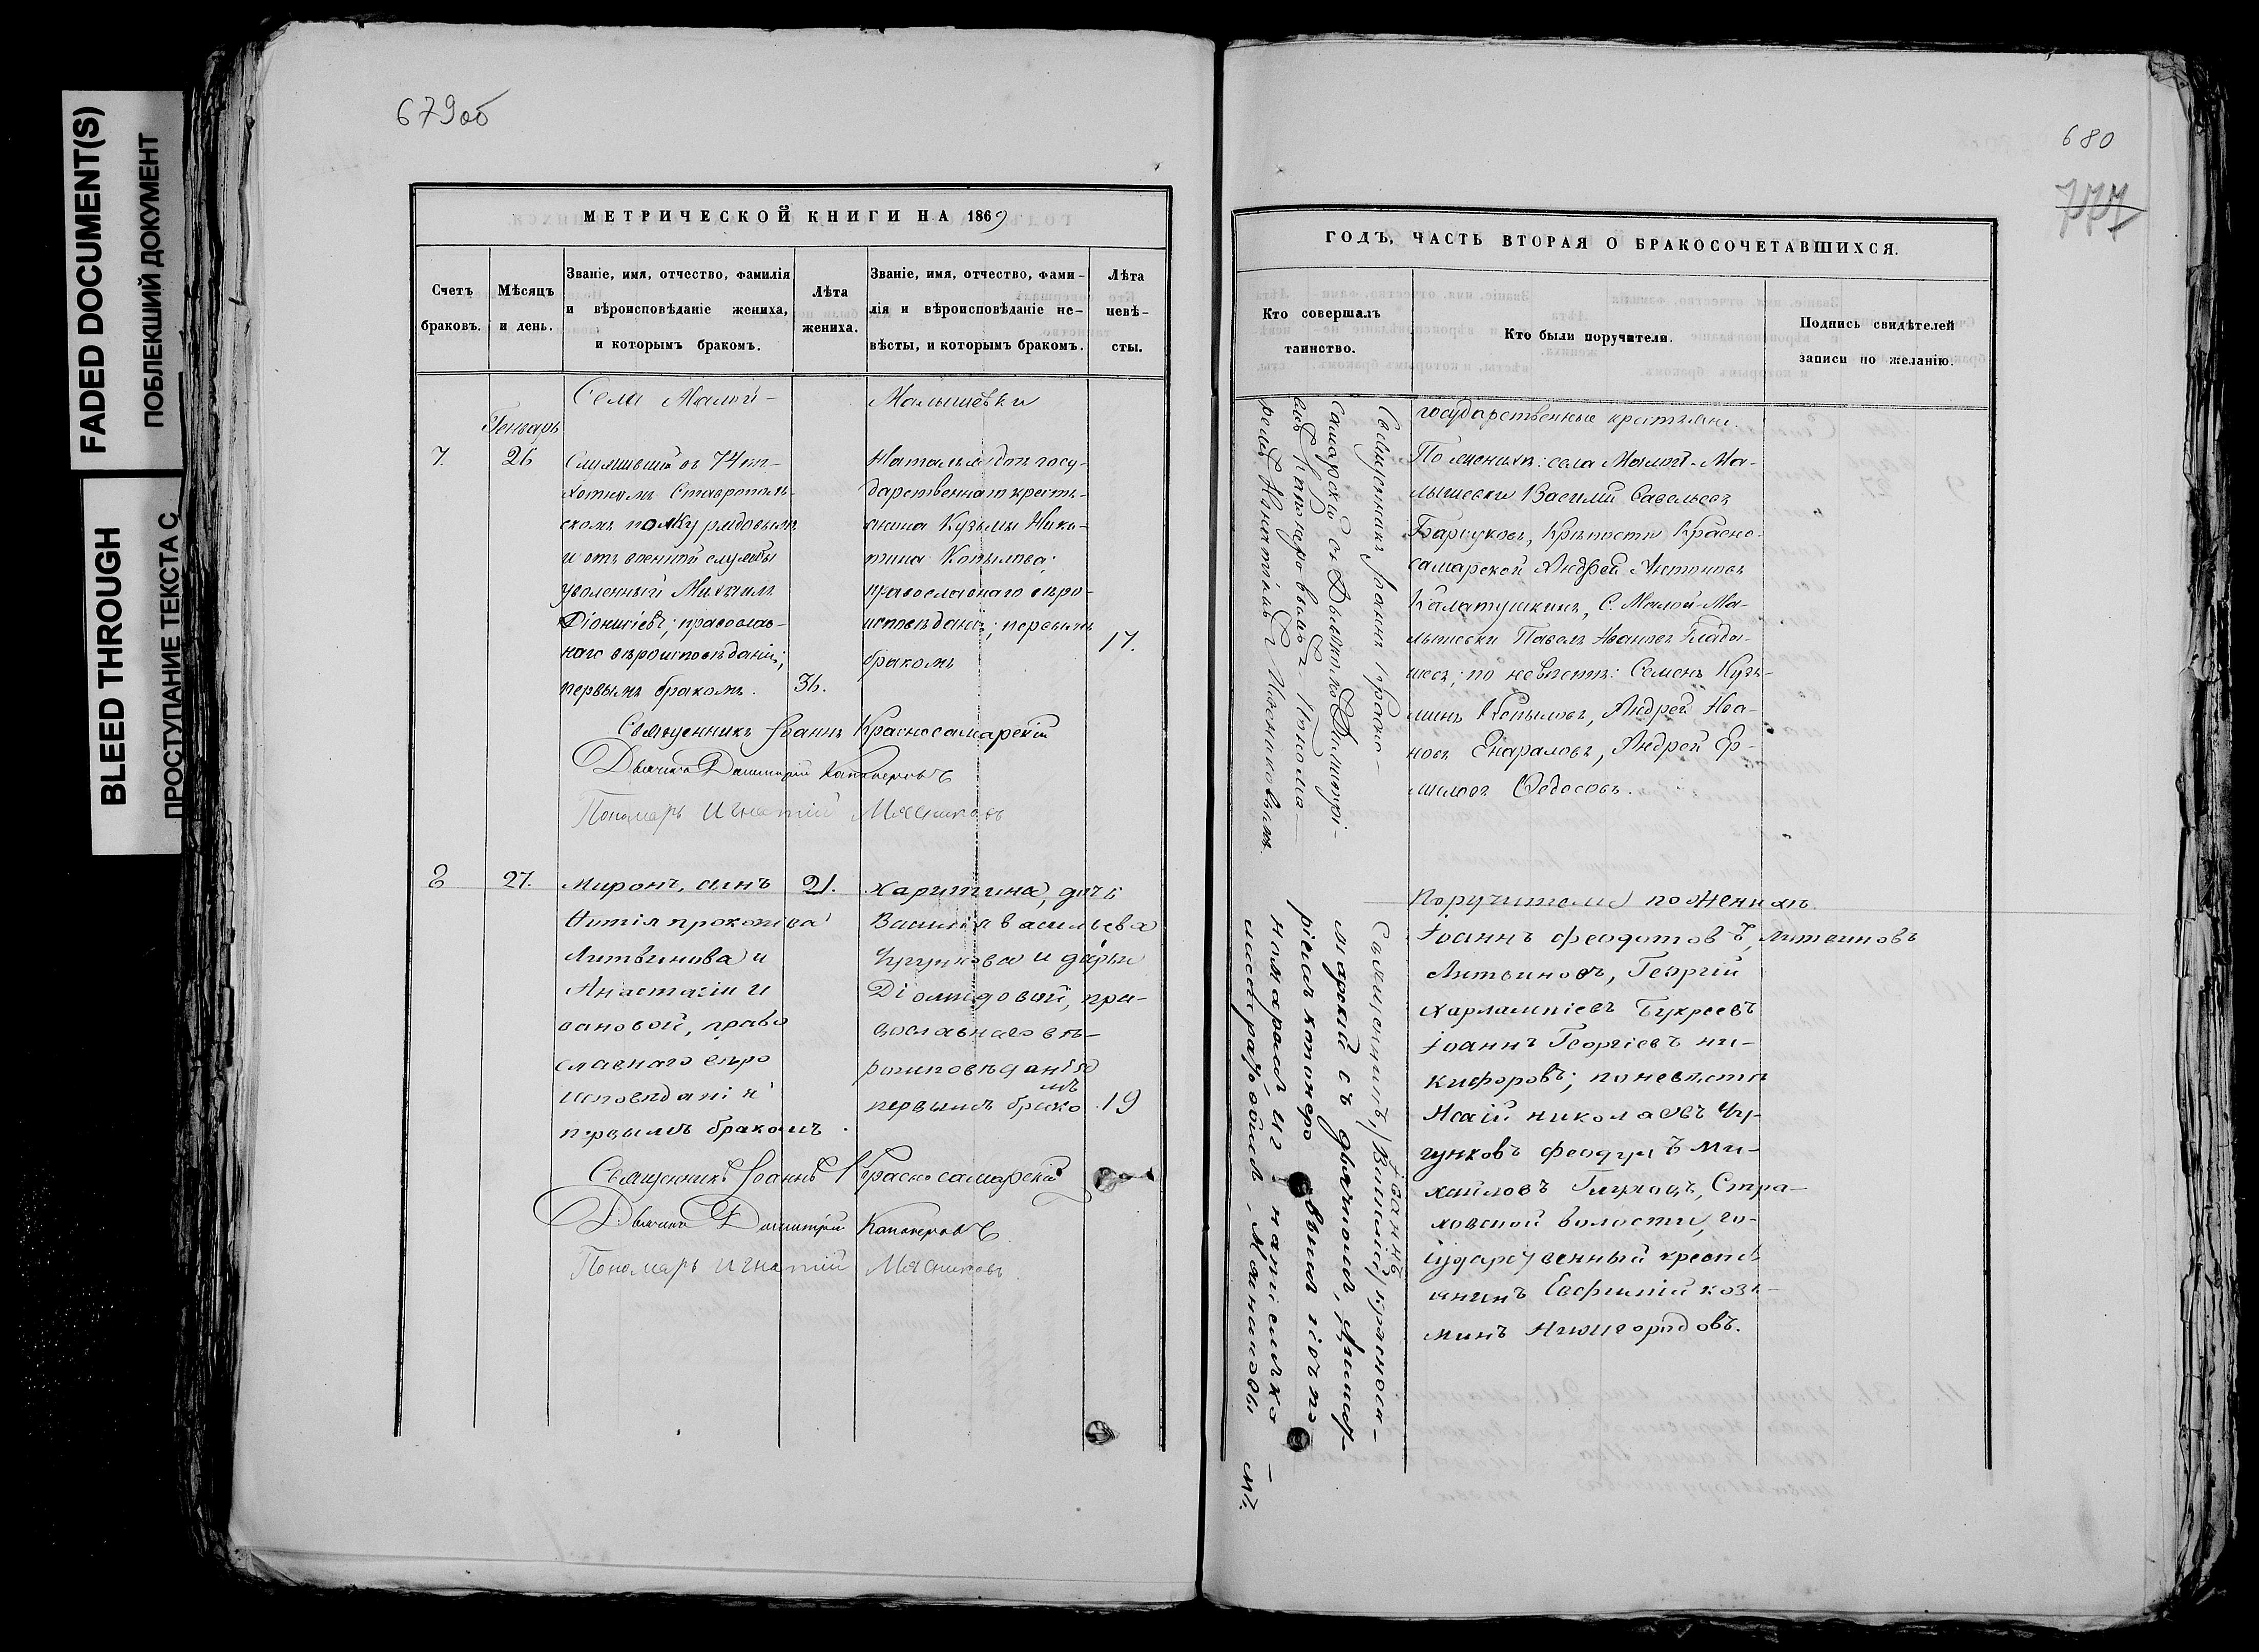 FADED DOCUMENT(S)
ПОБЛЕКШИЙ ДОКУМЕНТ
BLEED THROUGH
ПРОСТУПАНИЕ ТЕКСТА С
679об
МЕТРИЧЕСКОЙ КНИГИ НА 1869
Счетъ браковъ.
Мѣсяцъ и день.
Званіе, имя, отчество, фамилія
и вѣроисповѣданіе жениха,
и которымъ бракомъ.
Лѣта жениха.
Званіе, имя, отчество, фами-
лія и вѣроисповѣданіе не-
вѣсты, и которымъ бракомъ.
Лѣта невѣ-
сты.
Села Малой- Малышевки
Генварь
7.
26
Служившій въ 74 пѣ-
хотномъ Ставрополь-
скомъ полку рядовымъ
и отъ военной службы
уволенный Михаилъ
Діонисіевъ; православ-
наго вѣроисповѣданія;
первымъ бракомъ.
36.
Наталья дочь госу-
дарственнаго кресть-
янина Кузьмы Ники-
тина Копылова;
православнаго вѣро-
исповѣданія; первымъ
бракомъ
17.
Священникъ Іоаннъ Красносамарскій
Дьячекъ Димитрій Канонеровъ
Пономарь Игнатій Мясниковъ
8
27.
Миронъ, сынъ
прокопива
Литвинова и
Анастасіи И
вановой, право
славнаго вѣро
исповедані й
первымъ бракомъ.
21.
Харитина, дочь
Василія васильева
Чугункова и дарьи
Діомидовой, пра-
вославнаго вѣ-
роисповѣданія
первымъ брако
мъ
19
Священникъ Іоаннъ Красносамарскій
Дьячекъ Димитрій Канонеровъ
Пономарь Игнатій Мясниковъ
680
777
ГОДЪ, ЧАСТЬ ВТОРАЯ О БРАКОСОЧЕТАВШИХСЯ.
Кто совершалъ
таинство.
Кто были поручители.
Подпись свидѣтелей
записи по желанію.
Священникъ Іоаннъ Красно-
самарскій съ Дьячкомъ Димитрі-
емъ Канонеровымъ и Понома-
ремъ Игнатіемъ Мясниковымъ.
государственные крестьяне.
По женихѣ: села Малой-Ма-
лышевки Василій Савельевъ
Барсуковъ, Крѣпости Красно-
самарской Андрей Антиповъ
Калатушкинъ, С. Малой Ма-
лышевки Павелъ Ивановъ
по невѣстѣ: Семенъ Кузь-
минъ Копыловъ, Андрей Ива-
новъ Енараловъ, Андрей Ер-
миловъ Ѳедосовъ.
Священникъ, Василій красноса-
Іоаннъ
марскій съ дьячкомъ, Димит-
ріемъ каноне­ро вымъ и съ по
номаремъ
Поручители по женихѣ
Іоаннъ феодотовъ Литвиновъ
Литвиновъ, Георгій
Харлампіевъ Букреевъ
Іоаннъ Георгіевъ ни-
кифоровъ; по невѣсти
Исаій николаевъ Чу-
гунковъ феодулъ ми-
хайловъ Глуховъ, Стра-
ховской волости, го-
сударственный кресть
янинъ Евфимій козь-
минъ